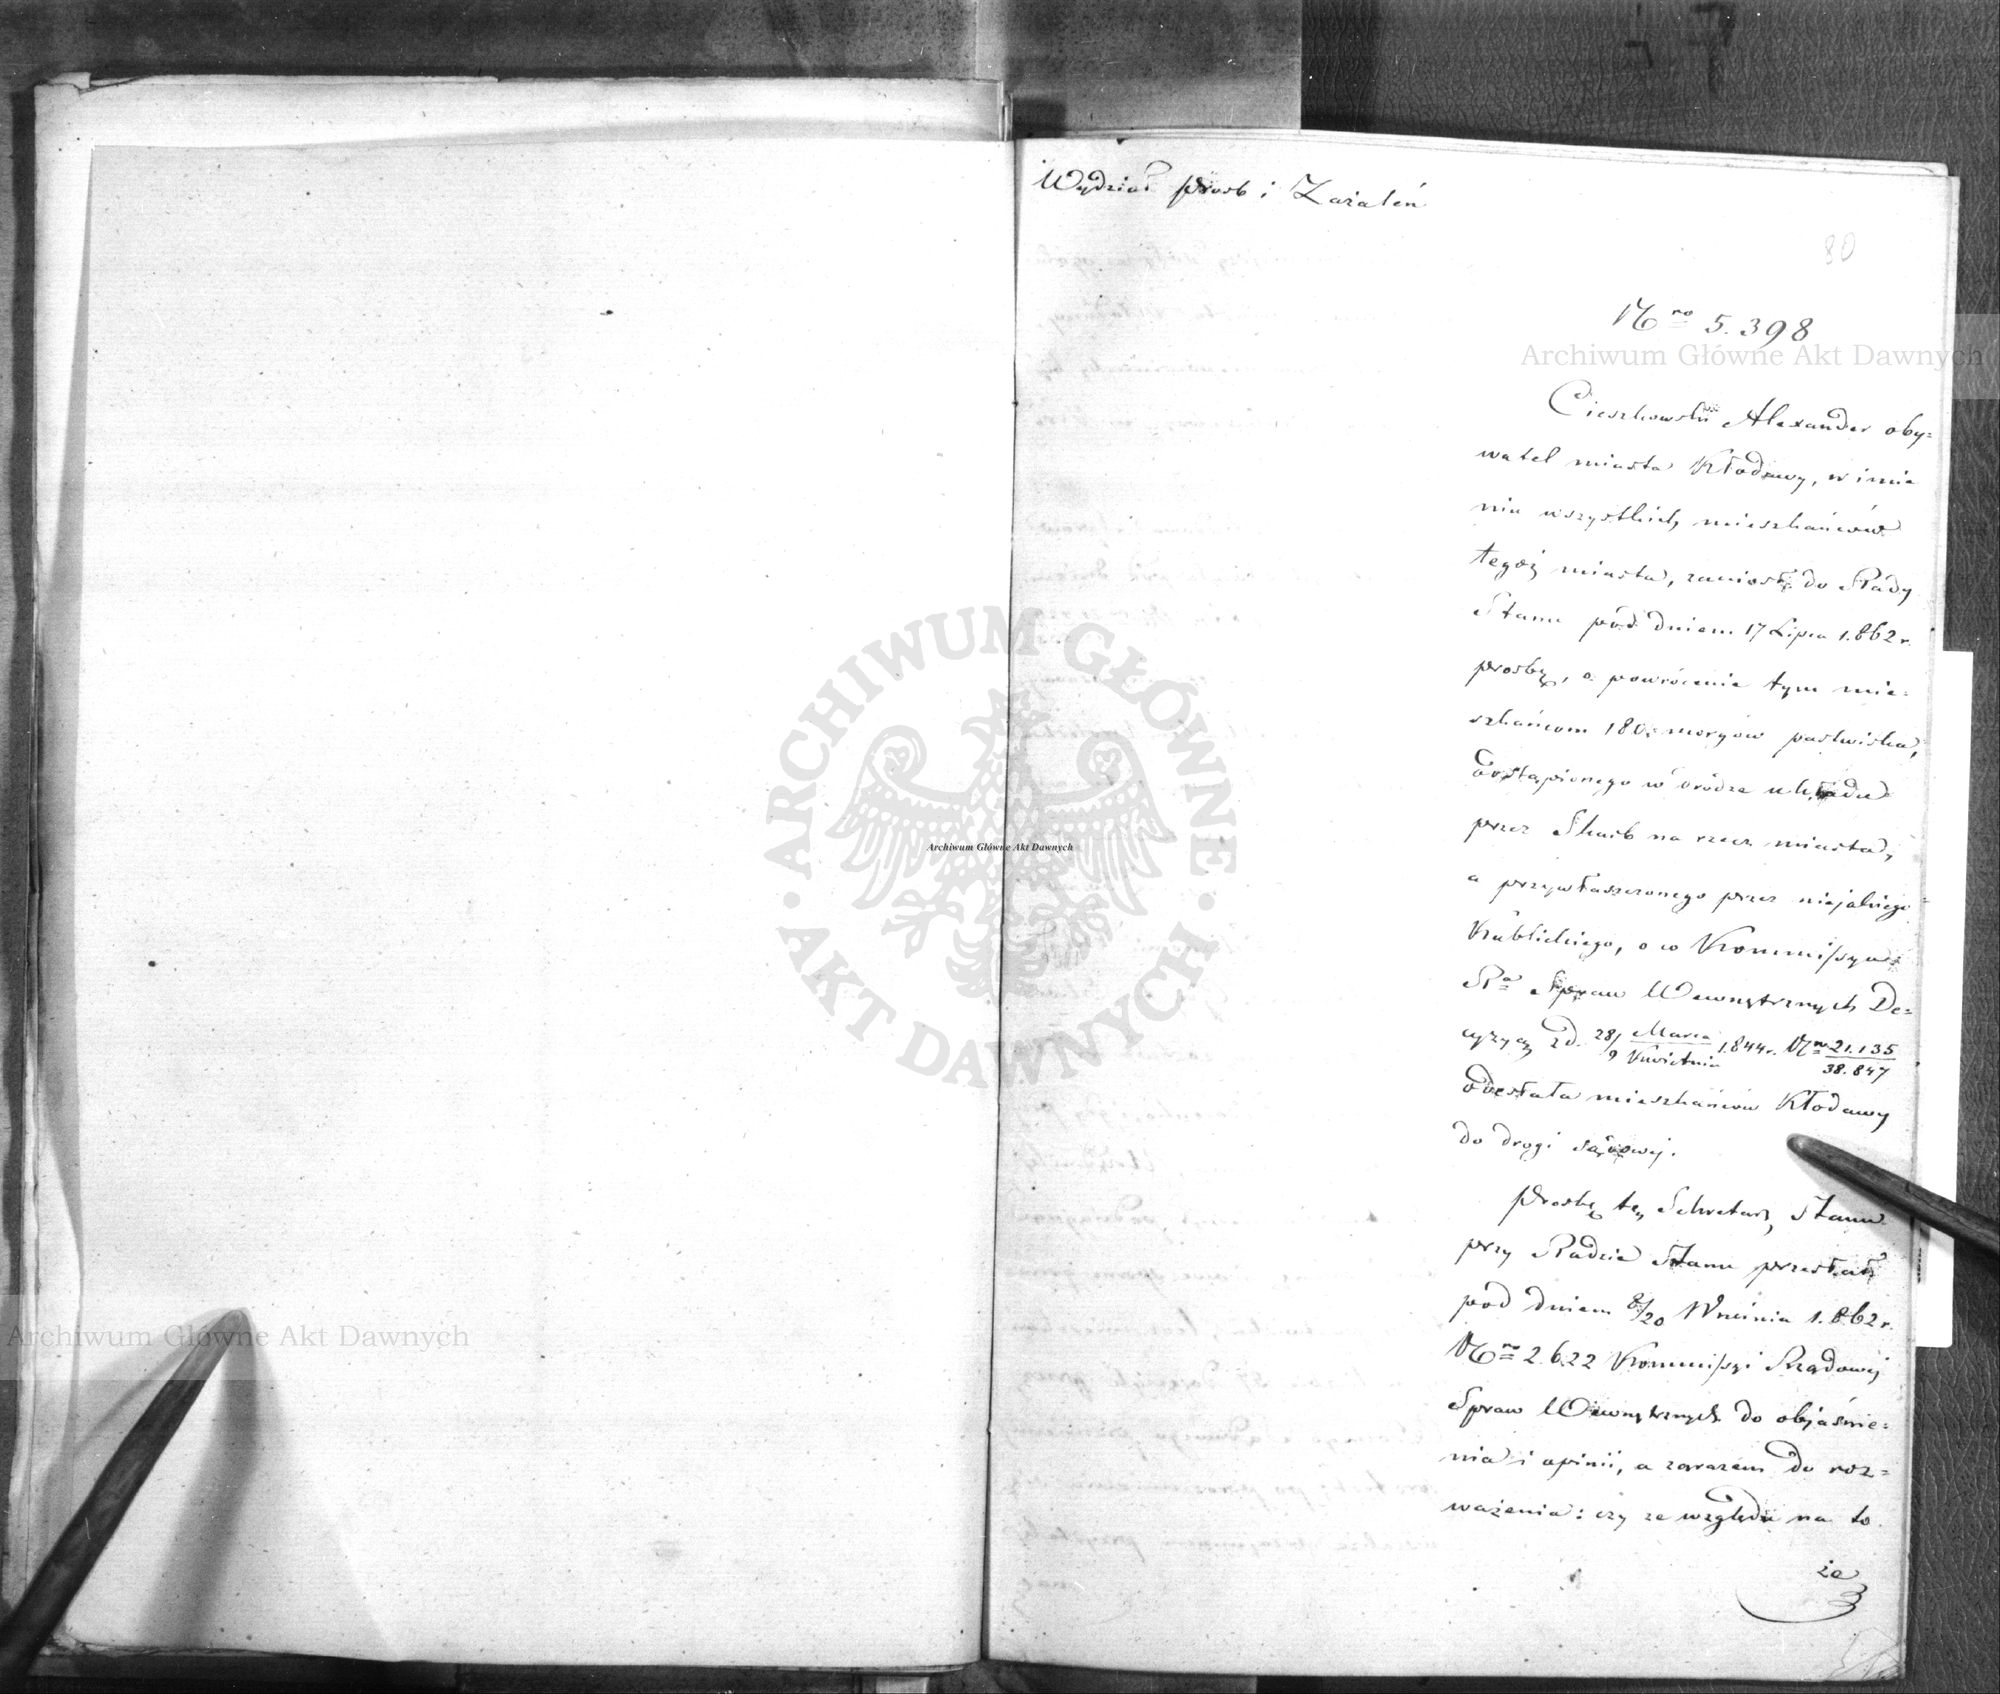 Wydział Prosb i Zażaleń
80
Nro 5.398
Cieszkowski Alexander oby=
watel miasta Kłodawy, w imie
niu wszystkich mieszkańców
tegoż miasta, zaniosł do Rady
Stanu pod dniem 17 Lipca 1.862 r.
prosbę, o powrócenie tym mie=
szkańcom 180 morgów pastwiska,
odstąpionego w drodze układu
przez Skarb na rzecz miasta,
a przywłaszczonego przez niejakiego
Kublickiego, o co Kommissya
Ra Spraw Wewnętrznych De=
cyzyą z d. 28/9 Marca/Kwietnia 1.844 r. Nro 21.135/38.847
odesłała mieszkańców Kłodawy
do drogi sądowej.
Prosbę tę, Sekretarz Stanu
przy Radzie Stanu przesłał
pod dniem 8/20 Września 1.862 r.
Nro 2.622 Kommissyi Rządowej
Spraw Wewnętrznych do objaśnie=
nia i opinii, a zarazem do roz=
ważenia: czy ze względu na to
że
Archiwum Główne Akt Dawnych
Archiwum Główne Akt Dawnych
Archiwum Główne Akt Dawnych
ARCHIWUM GŁÓWNE AKT DAWNYCH